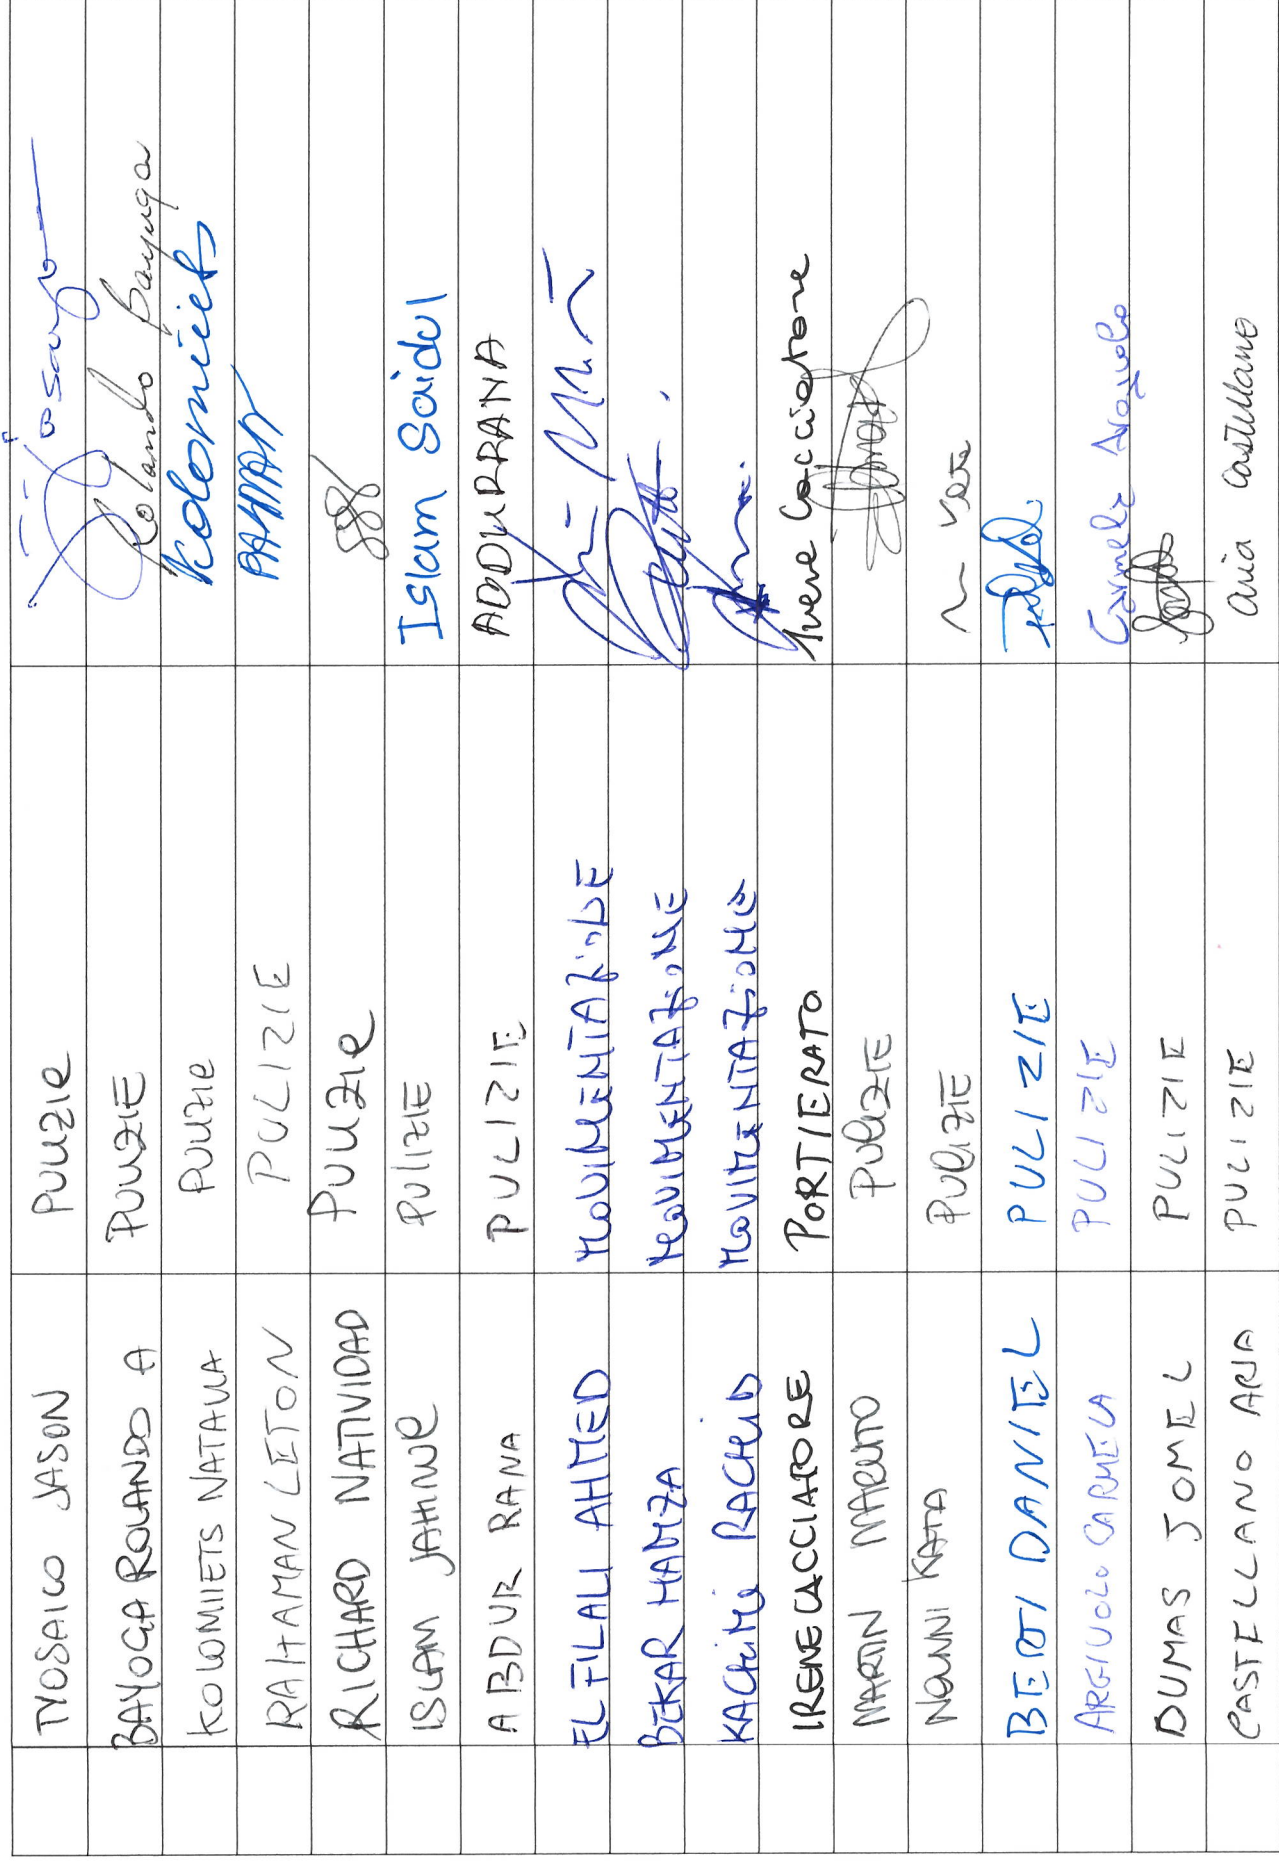 TYOSAICO JASON PULIZIE
BAYOGA ROLANDO A PULIZIE Rolando Bayuga
KOLOMIETS NATALIA PULIZIE Kolomiiets
RAHAMAN LETON PULIZIE
RICHARD NATIVIDAD PULIZIE
ISLAM JAHINUL PULIZIE Islam Saidul
ABDUR RANA PULIZIE ABDURRANA
EL FILALI AHMED MOVIMENTAZIONE
BEKAR HAMZA MOVIMENTAZIONE
KACHIMI RACHID MOVIMENTAZIONE
IRENE CACCIATORE PORTIERATO Irene Cacciatore
MARTIN MARLITO PULIZIE
NANNI KATA PULIZIE
BERTI DANIEL PULIZIE
ARGIUOLO CARMELA PULIZIE Carmela
DUMAS JOMEL PULIZIE
CASTELLANO ARIA PULIZIE aria castellano